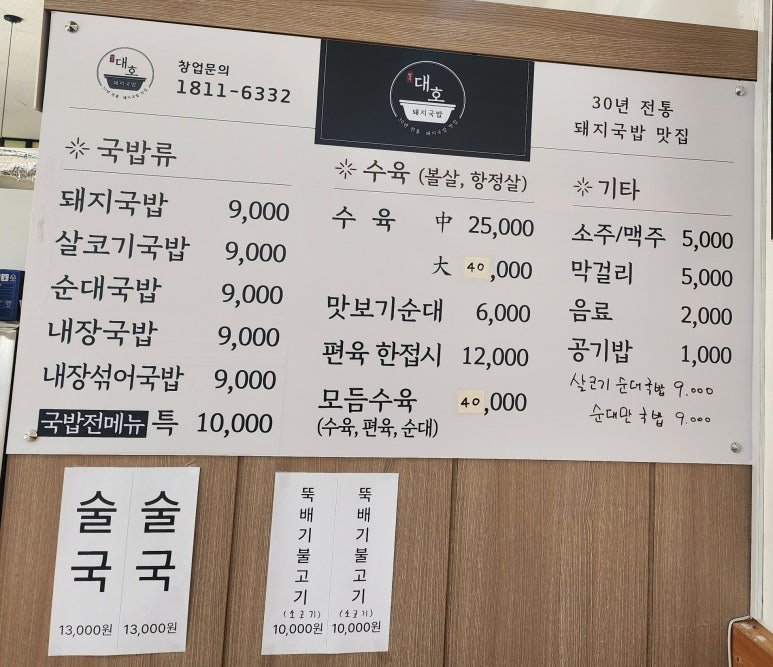 대호
돼지국밥
30년 전통 돼지국밥 맛집
창업문의
1811-6332
대호
돼지국밥
30년 전통 돼지국밥 맛집
30년 전통
돼지국밥 맛집
국밥류
돼지국밥 9,000
살코기국밥 9,000
순대국밥 9,000
내장국밥 9,000
내장섞어국밥 9,000
국밥전메뉴 특 10,000
수육 (볼살, 항정살)
수 육 中 25,000
大 40,000
맛보기순대 6,000
편육 한접시 12,000
모듬수육 40,000
(수육, 편육, 순대)
기타
소주/맥주 5,000
막걸리 5,000
음료 2,000
공기밥 1,000
살코기 순대국밥 9.000
순대만 국밥 9.000
술국
13,000원
술국
13,000원
뚝배기불고기
(소고기)
10,000원
뚝배기불고기
(소고기)
10,000원